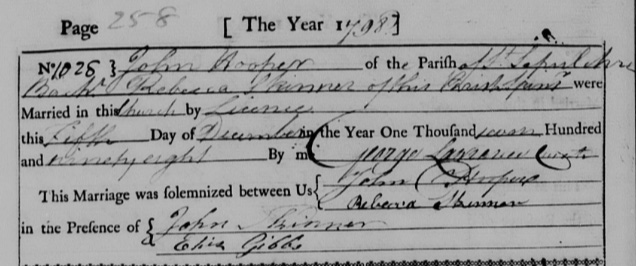 Page 258 [ The Year 1798 ]
No 1028 } John Hooper of the Parish of St Sepulchre
Bachr Rebecca Skinner of this Parish Spinr were
Married in this Church by Licence
this Fifth Day of December in the Year One Thousand seven Hundred
and ninety eight By me George Curate
This Marriage was solemnized between Us { John Hooper
Rebecca Skinner
in the Presence of { John Skinner
Eliza Gibbs